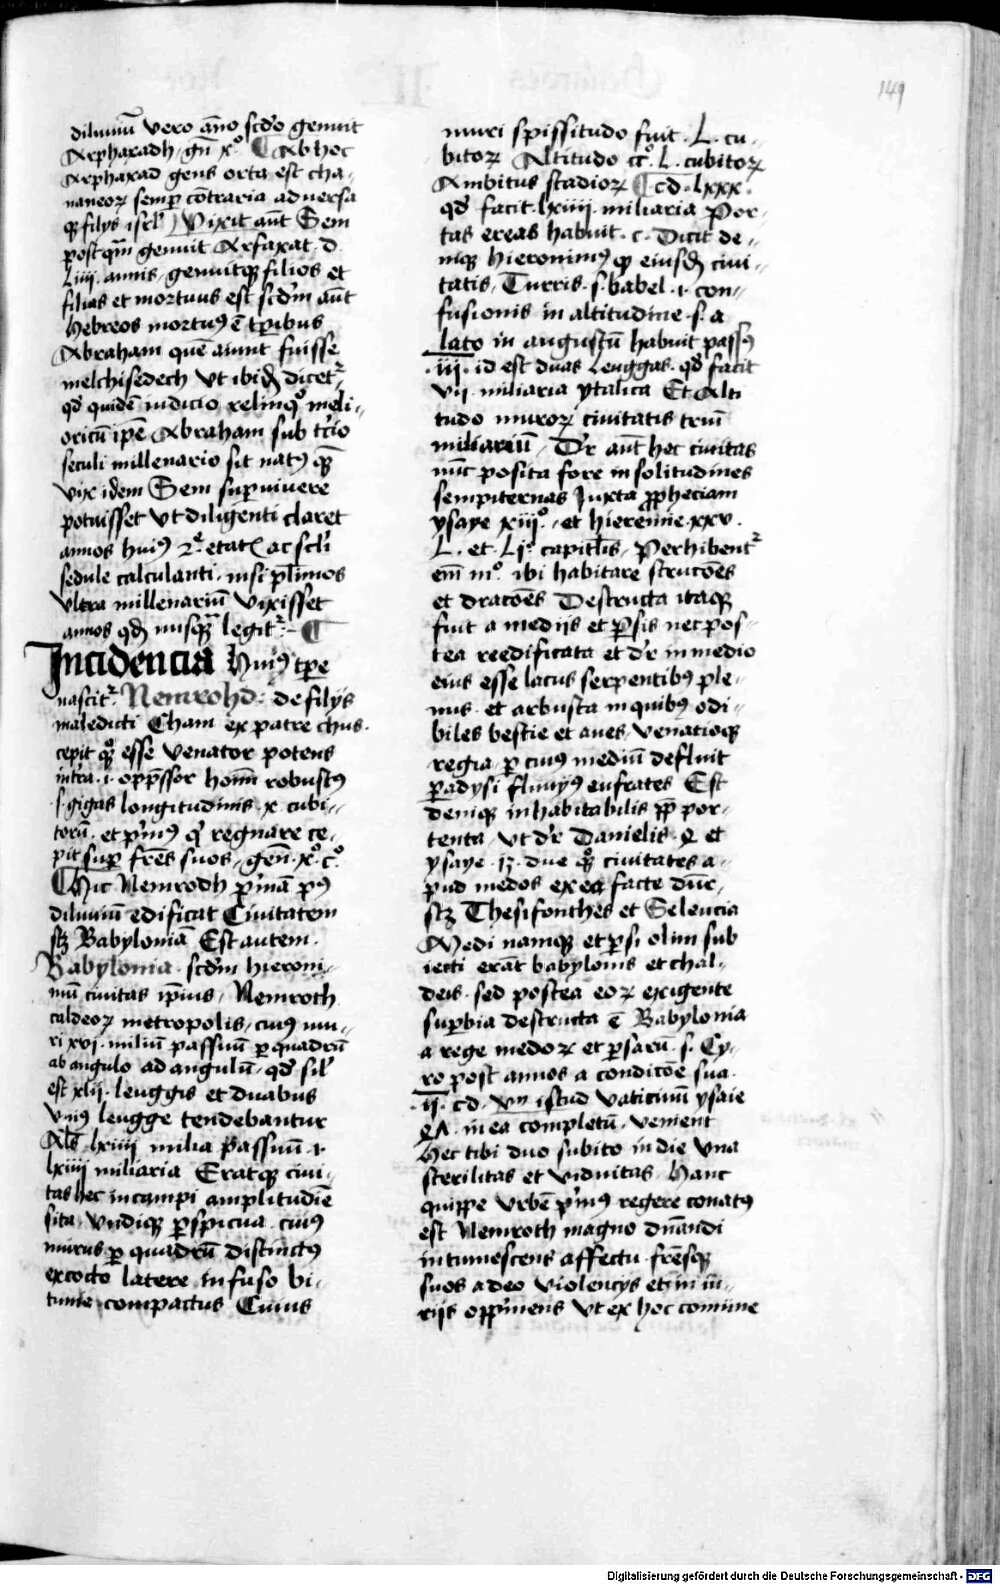 149
diluuiū vero āno scďo genuit
Arphaxadh, gñ xº. ¶ Ab hoc
Arphaxad gens orta est cha-
naneoꝝ semꝑ cōtraria aduersa
qꝫ filijs isrl' / Vixit aūt Sem
postqm̄ genuit Arfaxat . d.
Liiii . annis, genuitqꝫ filios et
filias et mortuus est scďm aūt
Hebreos mortuꝰ ē tꝑibus
Abraham quē aiunt fuisse
melchisedech vt ibiď dicetᷣ
qď quidē iudicio relinqº meli-
oricū ipē Abraham sub tc̄io
seculi millenario sit natꝰ qꝫ
vix idem Sem suꝑuiuere
potuisset vt diligenti claret
annos huiꝰ 2ᵉ. etatꝭ ac scl̄i
sedule calculanti . nisi pl̄imos
vltra millenariū vixisset
annos qď nusqꝫ legitᷣ ¶
Incidencia Huiꝰ tꝑe
nascitᷣ Nemrohd : de filijs
maledicti Cham ex patre chus.
cepit qꝫ esse venator potens
.i. opp̄ssor hoīm robustꝰ
.s. gigas longitudinis . x . cubi-
torū . et p̄mꝰ qi regnare ce-
pit suꝑ fr̄es suos, geñ . xº. cº.
¶ Hic Nemrodh p̄mā pꝰ
diluuiū edificat Ciuitatem
scꝫ Babyloniā Est autem .
Babylonia . scďm hieroni-
mū ciuitas ip̄ius, Nemroth
caldeoꝝ metropolis, cuiꝰ mu-
ri xvi . miliū passuū ꝑ quadrū
ab angulo ad angulū . qď sil'
est xlij . leuggis et duabus
vniꝰ leugge tendebantur
Al's . lxiiii milia passuū .i.
lxiiii miliaria Eratqꝫ ciui-
tas hec in campi amplitudīe
sita . vndiqꝫ ꝑspicua . cuiꝰ
murus ꝑ quadrū distinctꝰ
excocto latere . infuso bi-
tume compactus Cuius
muri spissitudo fuit . L . cu-
bitoꝝ Altitudo ccº. L . cubitoꝝ
Ambitus stadioꝝ ¶ cd . lxxx .
qď facit . lxiiii . miliaria Por-
tas ereas habuit . c . Dicit de-
niqꝫ hieronimꝰ qꝫ eiusď ciui-
tatis . Turris . s. babel .i. con-
fusionis in altitudine . s. a
lato in augustū habuit passꝰ
.iii. id est duas Leuggas . qď facit
vii . miliaria ytalica Et Alti
tudo muroꝝ ciuitatis triū
miliariū, Dr̄ aūt hec ciuitas
nūc posita fore in solitudines
sempiternas Juxta ꝓpheciam
ysaye xiijº. et hieremie . xxv .
L . et . Ljº. capitl'is, Perhibentᷣ
em̄ mº. ibi habitare strucōes
et dracōes Destructa itaqꝫ
fuit a medijs et ꝑsis nec pos-
tea reedificata et dr̄ in medio
eius esse lacus serpentibꝰ ple-
nus . et arbusta in quibꝰ odi-
biles bestie et aues, venatioqꝫ
regia . ꝑ cuiꝰ mediū defluit
ꝑadysi fluuiꝰ eufrates Est
deniqꝫ inhabitabilis ꝓp por-
tenta . vt dr̄ Danielis . et
ysaye . 13 . due qꝫ ciuitates a-
pud medos ex ea facte dūr,
scꝫ Thesifonthes et Seleucia
Medi namqꝫ et ꝑsi olim sub
iecti erāt babylonis et chal-
deis . sed postea eoꝝ exigente
suꝑbia destructa ē Babylonia
a rege medoꝝ et ꝑsarū . s. Cy-
ro post annos a condicōe sua
.ii. cd. istud vaticiniū ysaie
in ea completū . venient
Hec tibi duo subito in die vna
sterilitas et viduitas . Hanc
quippe vrbē p̄mꝰ regere conatꝰ
est Nemroth magno dn̄andi
intumescens affectu . fr̄esqꝫ
suos adeo violencijs et in iū-
rijs opp̄mens vt ex hoc comūne
Digitalisierung gefördert durch die Deutsche Forschungsgemeinschaft - DFG